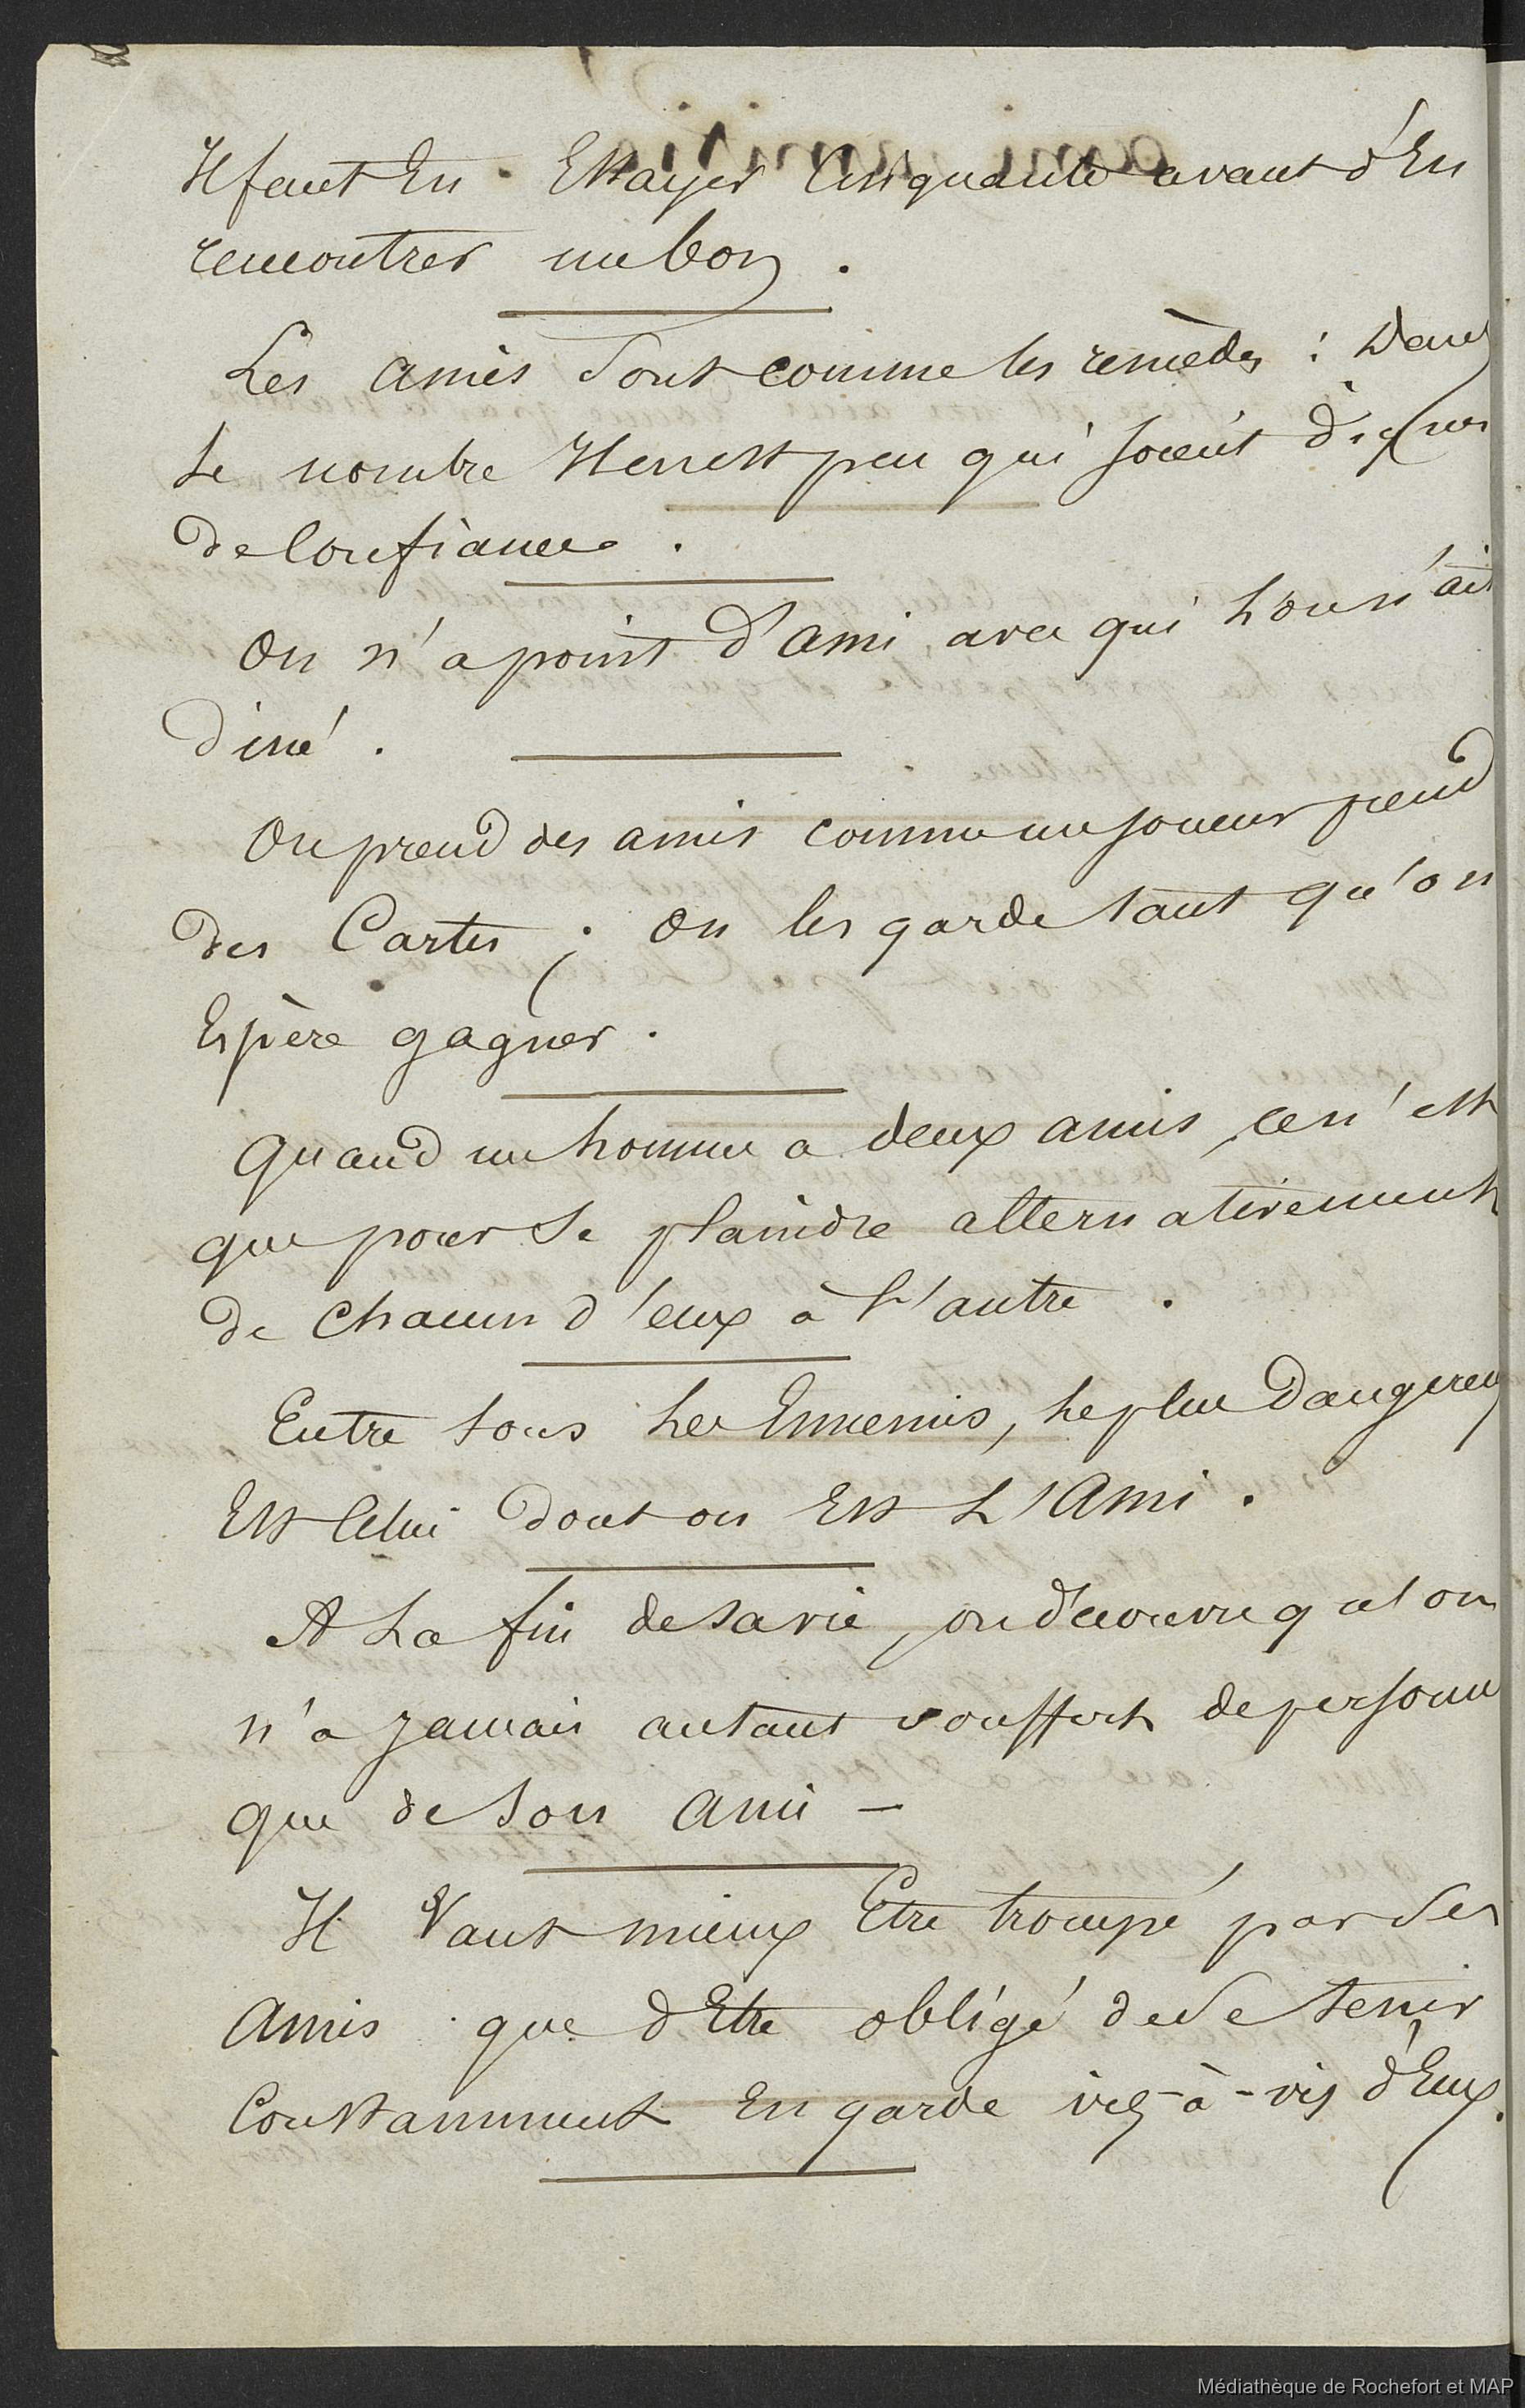 Il faut En Essayer Cinquante avant d'En
rencontrer un bon.
Les amis sont comme les remèdes : Dans
Le nombre Il en est peu qui soient dignes
de Confiance.
On n'a point d'ami avec qui L'on n'ait
diné.
On prend des amis comme un joueur prend
des Cartes ; On les garde tant qu'on
Espère gagner.
Quand un homme a deux amis, ce n'est
que pour se plaindre alternativement
de chacun d'eux à L'autre.
Entre tous Les Ennemis, Le plus Dangereux
Est Celui dont on Est L'Ami.
A La fin de sa vie, on découvre qu'on
n'a jamais autant souffert de personne
que de son ami –
Il Vaut mieux Etre trompé par ses
Amis que d'Etre obligé de se tenir
Constamment En garde vis-à-vis d'Eux.
Médiathèque de Rochefort et MAP